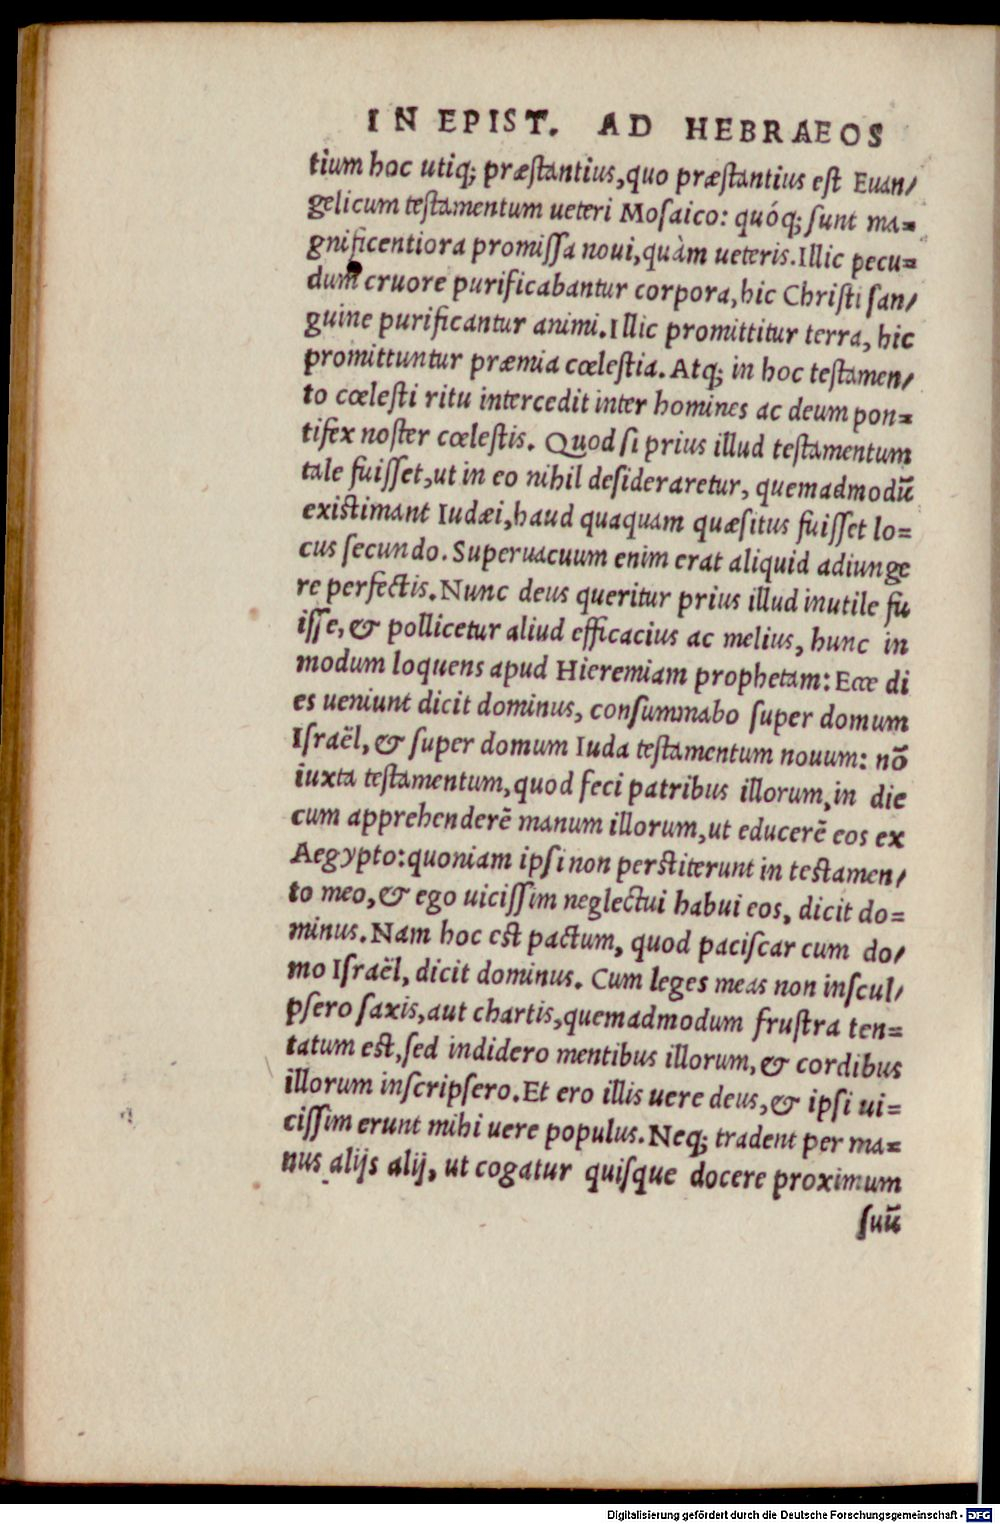 IN EPIST. AD HEBRAEOS
tium hoc utiq; præstantius, quo præstantius est Euan/
gelicum testamentum ueteri Mosaico: quóq; sunt ma=
gnificentiora promissa noui, quàm ueteris. Illic pecu=
dum cruore purificabantur corpora, hic Christi san/
guine purificantur animi. Illic promittitur terra, hic
promittuntur præmia cœlestia. Atq; in hoc testamen/
to cœlesti ritu intercedit inter homines ac deum pon=
tifex noster cœlestis. Quod si prius illud testamentum
tale fuisset, ut in eo nihil desideraretur, quemadmodū
existimant Iudæi, haud quaquam quæsitus fuisset lo=
cus secundo. Superuacuum enim erat aliquid adiunge
re perfectis. Nunc deus queritur prius illud inutile fu
isse, & pollicetur aliud efficacius ac melius, hunc in
modum loquens apud Hieremiam prophetam: Ecce di
es ueniunt dicit dominus, consummabo super domum
Israël, & super domum Iuda testamentum nouum: nō
iuxta testamentum, quod feci patribus illorum, in die
cum apprehenderē manum illorum, ut educerē eos ex
Aegypto: quoniam ipsi non perstiterunt in testamen/
to meo, & ego uicissim neglectui habui eos, dicit do=
minus. Nam hoc est pactum, quod paciscar cum do/
mo Israël, dicit dominus. Cum leges meas non inscul/
psero saxis, aut chartis, quemadmodum frustra ten=
tatum est, sed indidero mentibus illorum, & cordibus
illorum inscripsero. Et ero illis uere deus, & ipsi ui=
cissim erunt mihi uere populus. Neq; tradent per ma=
nus alijs alij, ut cogatur quisque docere proximum
suū
Digitalisierung gefördert durch die Deutsche Forschungsgemeinschaft - DFG